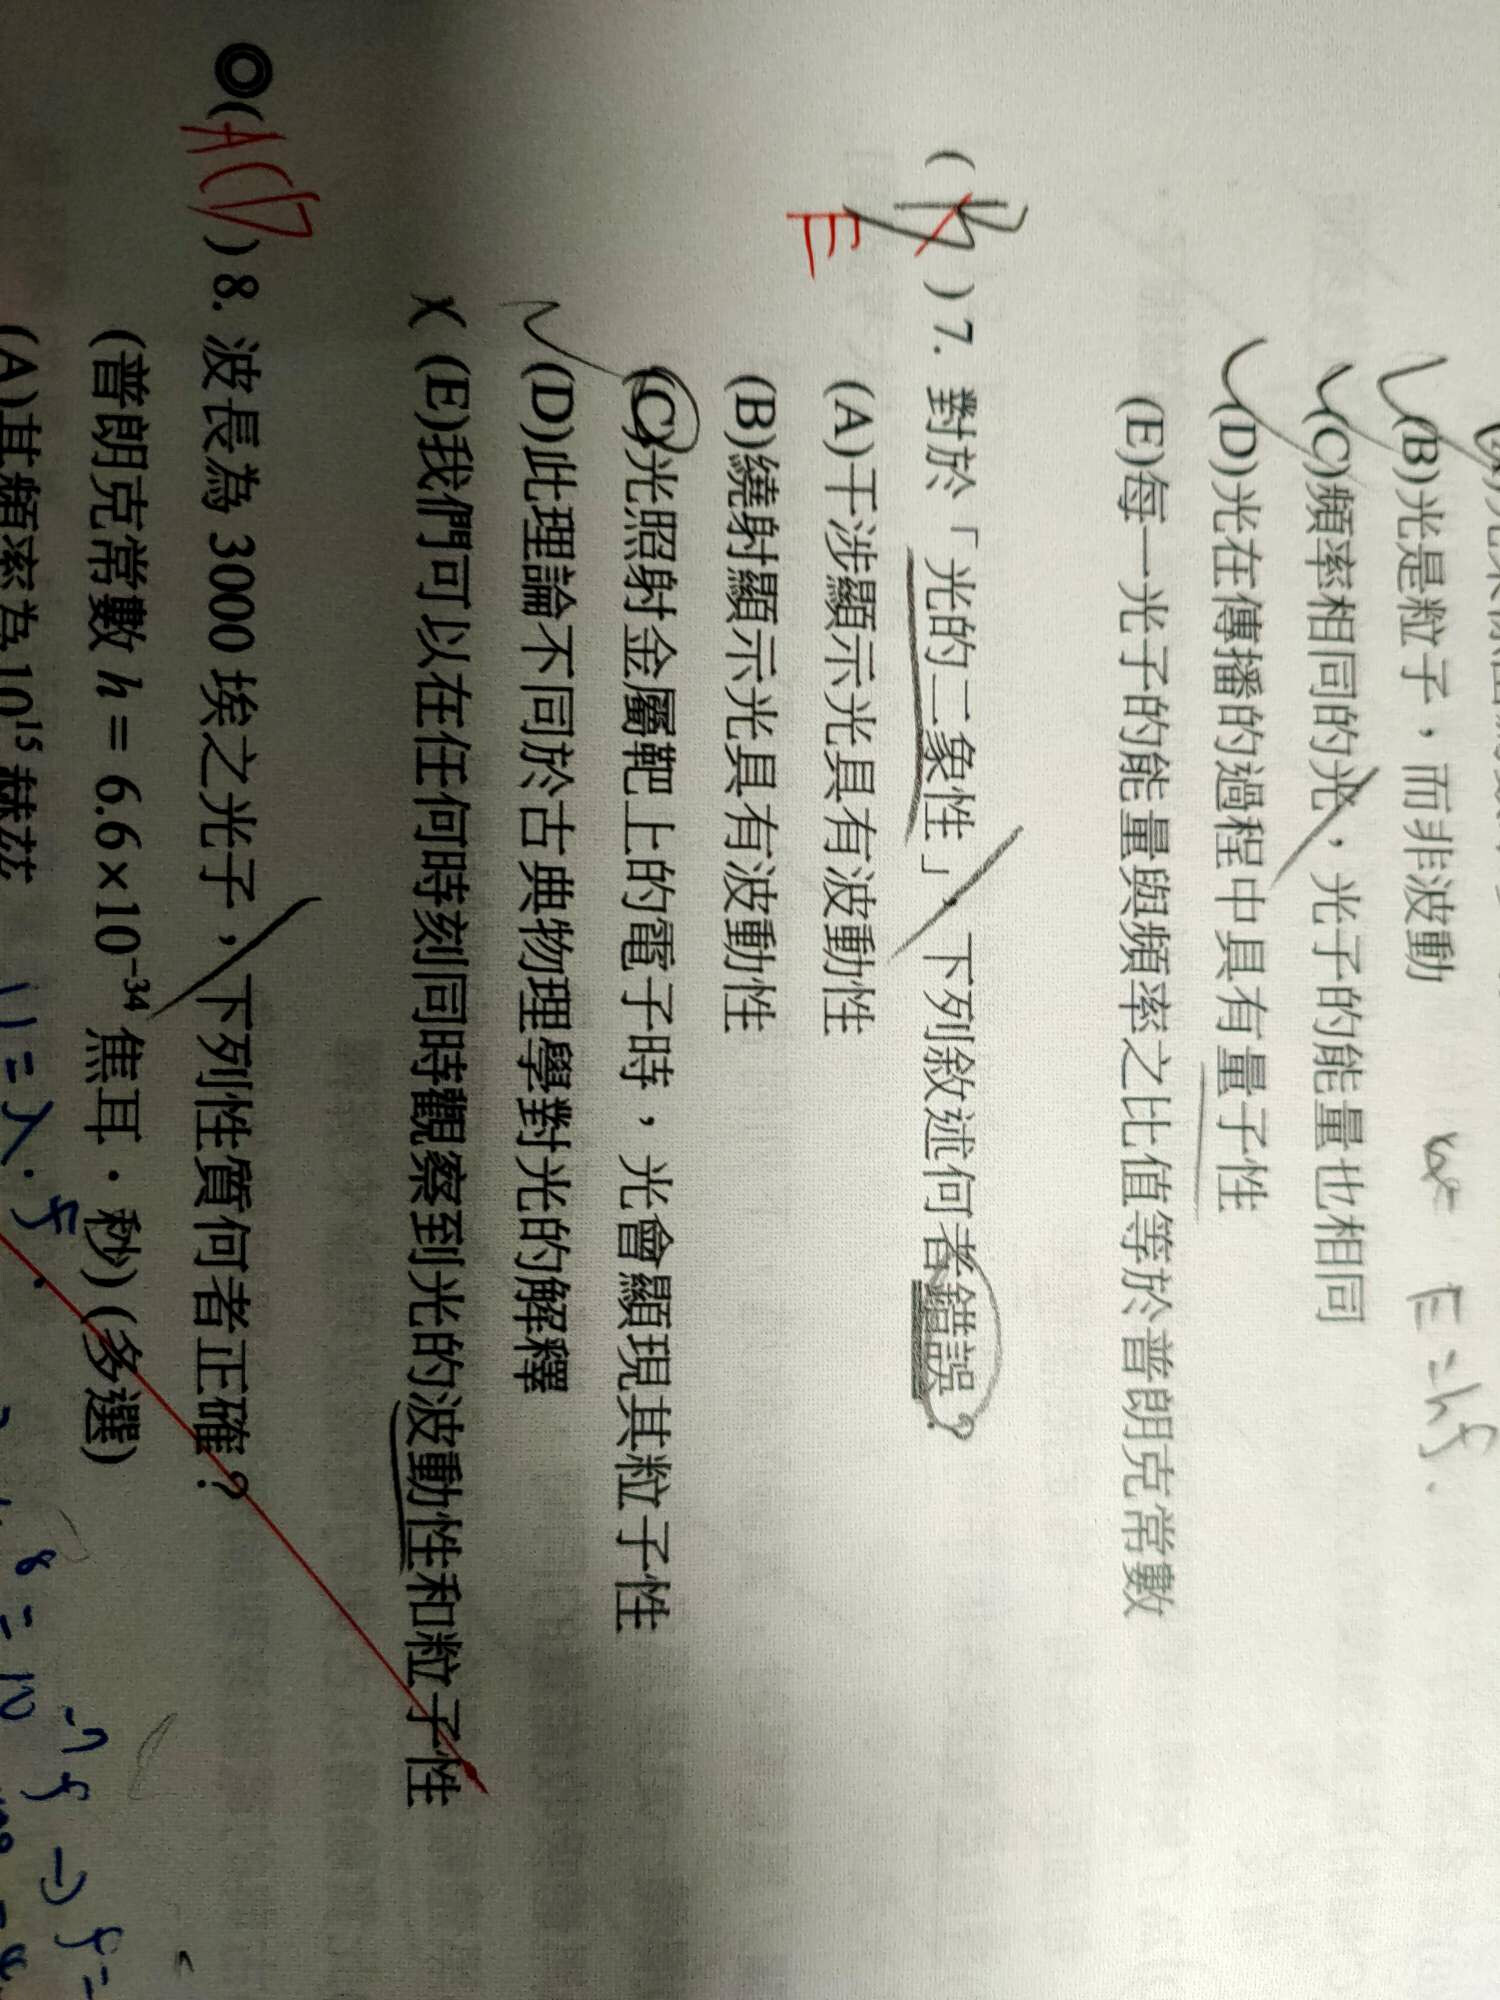 (B)光是粒子，而非波動
E=hf.
(C)頻率相同的光，光子的能量也相同
(D)光在傳播的過程中具有量子性
(E)每一光子的能量與頻率之比值等於普朗克常數
( ) 7. 對於「光的二象性」，下列敘述何者錯誤？
E
(A)干涉顯示光具有波動性
(B)繞射顯示光具有波動性
(C)光照射金屬靶上的電子時，光會顯現其粒子性
(D)此理論不同於古典物理學對光的解釋
(E)我們可以在任何時刻同時觀察到光的波動性和粒子性
◎(ACD) 8. 波長為 3000 埃之光子，下列性質何者正確？
(普朗克常數 h = 6.6×10⁻³⁴ 焦耳·秒) (多選)
(A)其頻率為 10¹⁵ 赫茲